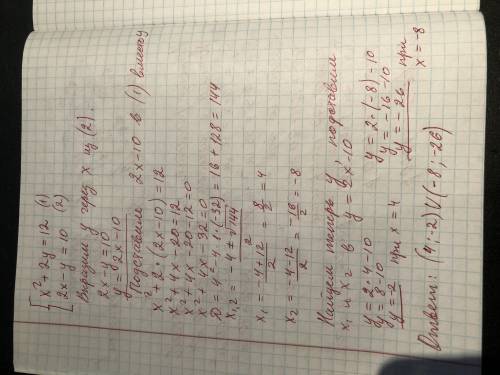 x² + 2y = 12 (1)
2x - y = 10 (2)
Выразим y через x из (2).
2x - y = 10
y = 2x - 10
Подставим 2x - 10 в (1) вместо y
x² + 2 · (2x - 10) = 12
x² + 4x - 20 = 12
x² + 4x - 20 - 12 = 0
x² + 4x - 32 = 0
D = 4² - 4 · 1 · (-32) = 16 + 128 = 144
x₁,₂ = (-4 ± √144) / 2
x₁ = (-4 + 12) / 2 = 8/2 = 4
x₂ = (-4 - 12) / 2 = -16/2 = -8
Найдем теперь y, подставим
x₁ и x₂ в y = 2x - 10
y = 2 · 4 - 10
y = 8 - 10
y = -2 при x = 4
y = 2 · (-8) - 10
y = -16 - 10
y = -26 при x = -8
Ответ: (4; -2) V (-8; -26)